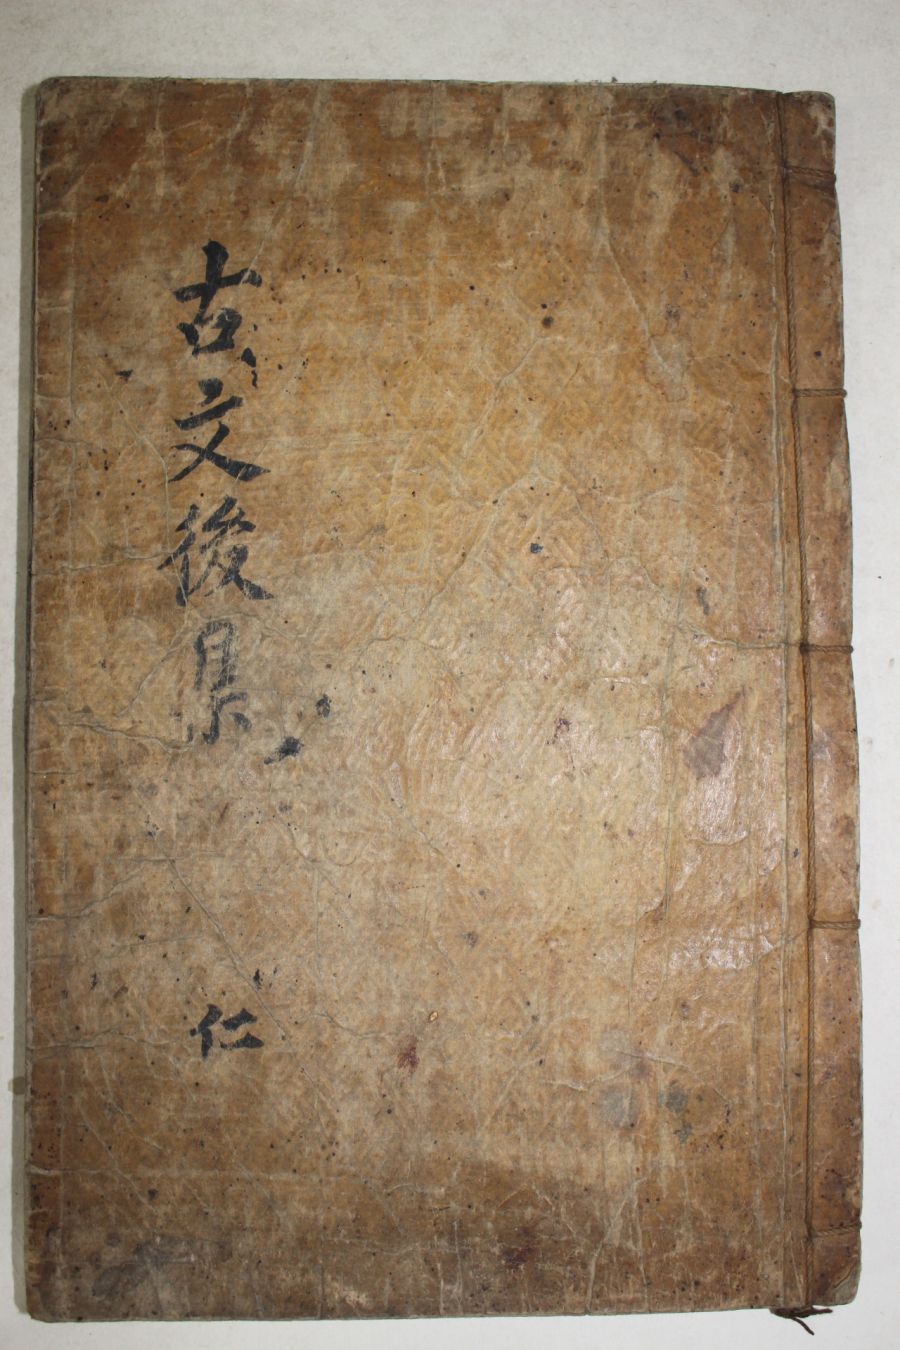 古文後集
仁